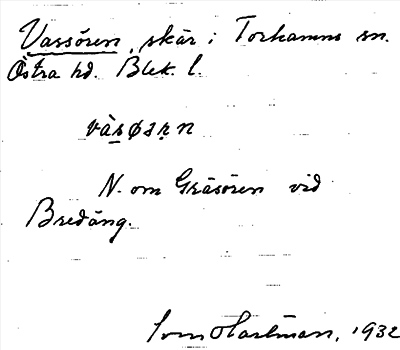 Vassören, skär i Torhamns sn.
Östra hd. Blek. l.
vàsøsn
N. om Gräsören vid
Bredäng.
Hartman, 1932